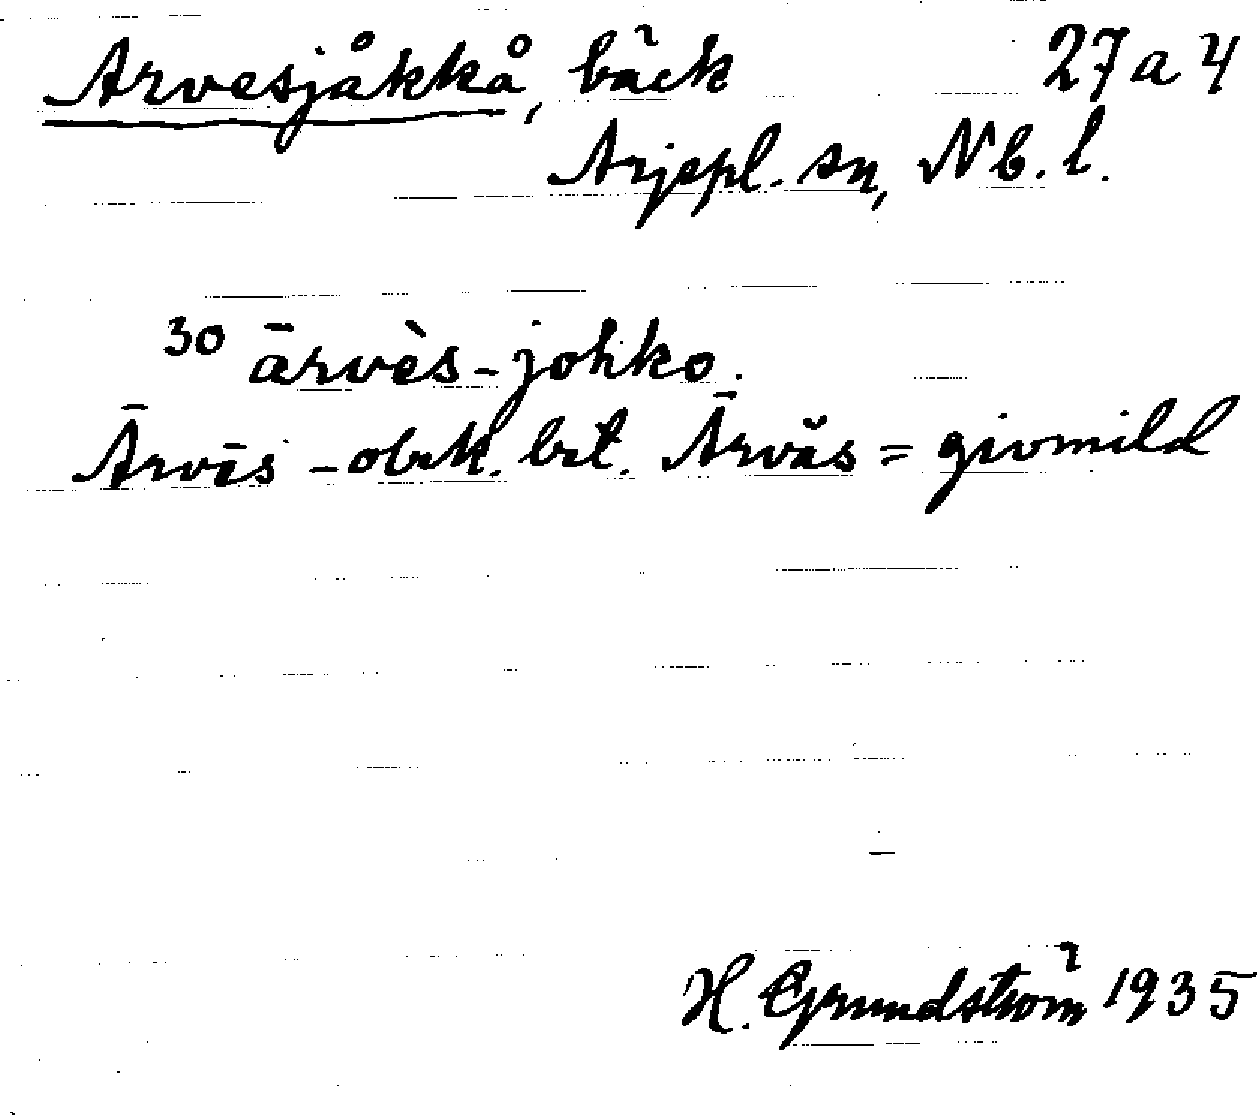 Arvesjåkkå, bäck 27 a 4
Arjepl. sn, Nb. l.
30 ārvès-johko.
Ārvēs - obek. bet. Ārvăs = givmild
H. Grundström 1935